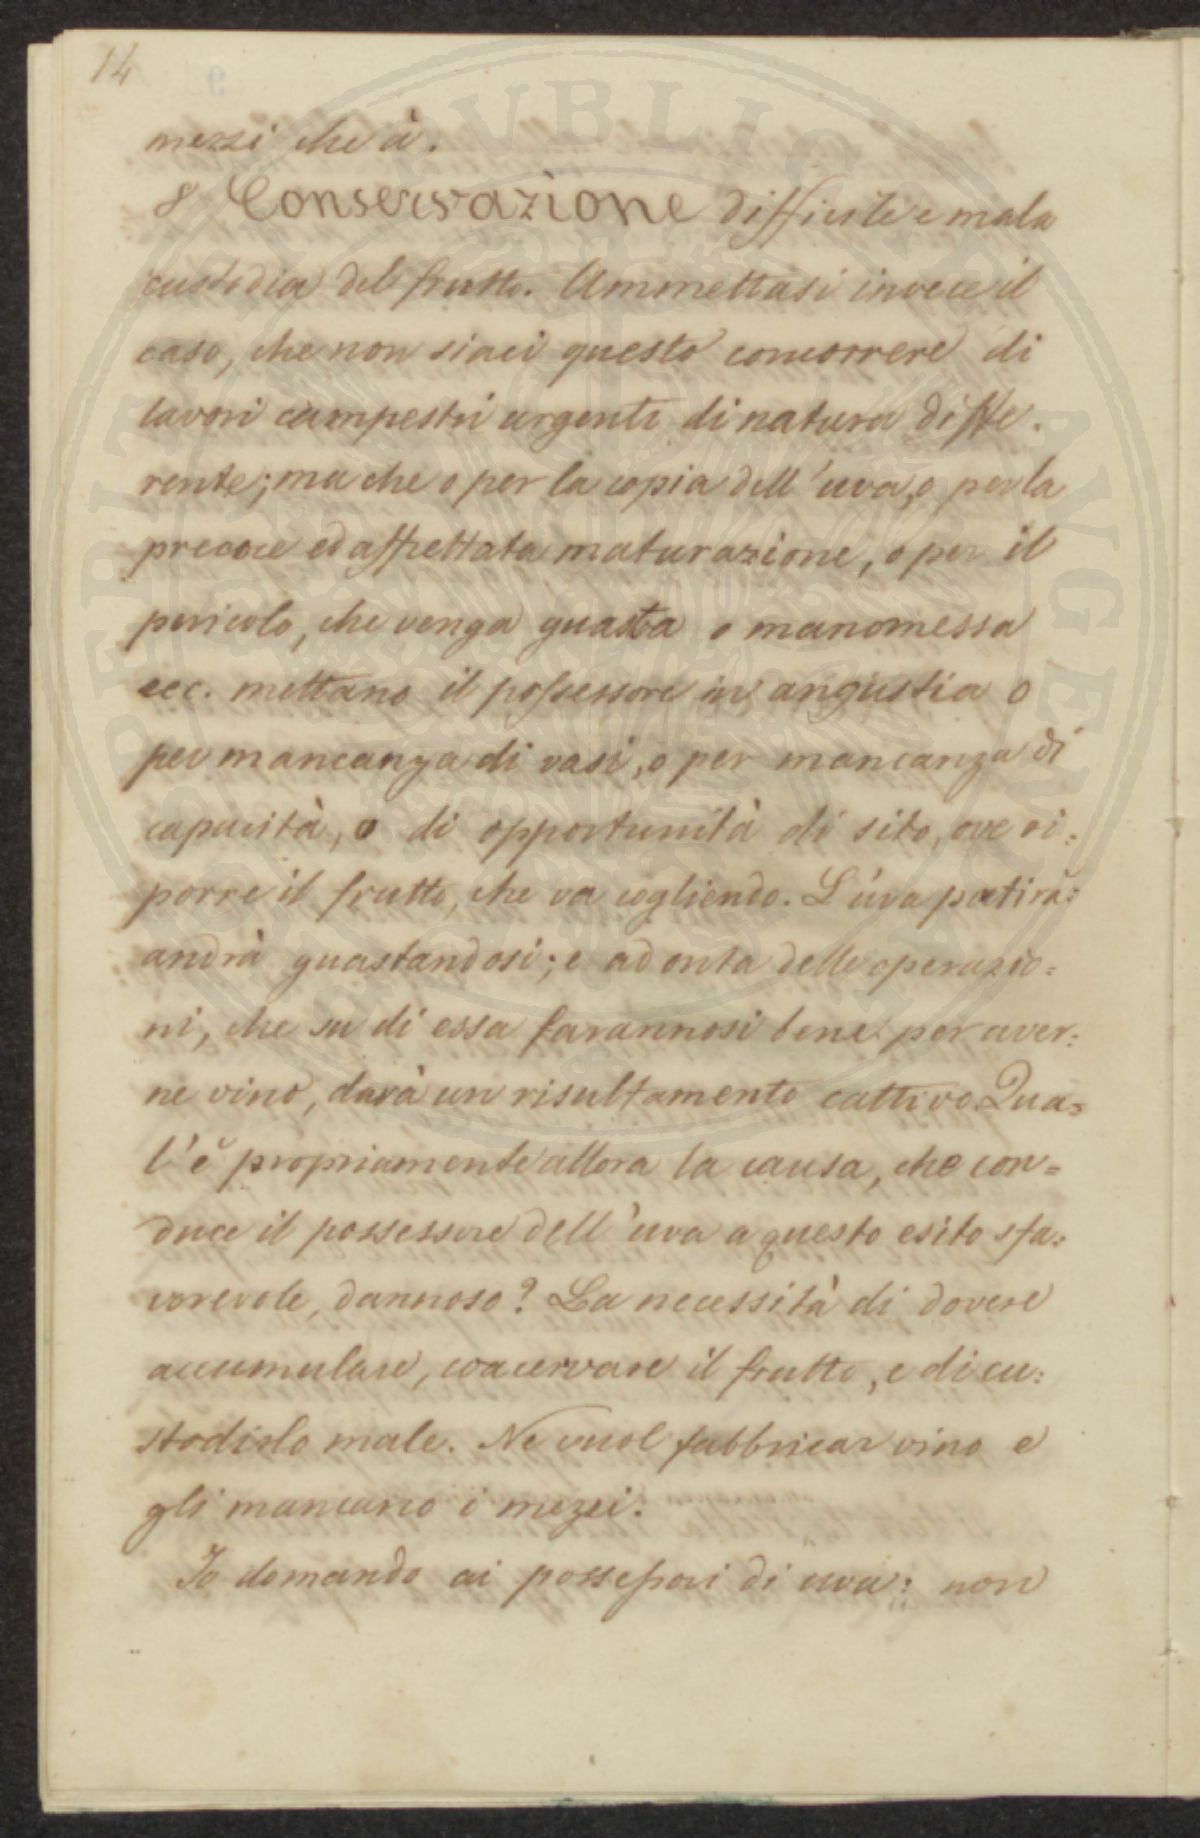 14
mezzi che à.
8 Conservazione difficile e mala
custodia del frutto. Ammettasi invece il
caso, che non siaci questo concorrere di
lavori campestri urgenti di natura diffe.
rente; ma che o per la copia dell'uva, o per la
precoce ed affrettata maturazione, o per il
pericolo, che venga guasta o manomessa
ecc. mettano il possessore in angustia o
per mancanza di vasi, o per mancanza di
capacità, o di opportunità di sito, ove ri:
porre il frutto, che va cogliendo. L'uva patirà:
andrà guastandosi; e ad onta delle operazio=
ni, che su di essa farannosi bene per aver:
ne vino, darà un risultamento cattivo. Qua=
l'è propriamente allora la causa, che con=
duce il possessore dell'uva a questo esito sfa:
vorevole, dannoso? La necessità di dovere
accumulare, coacervare il frutto, e di cu:
stodirlo male. Ne vuol fabbricar vino e
gli mancano i mezzi.
Io domando ai possessori di uva: non
PVBLICE